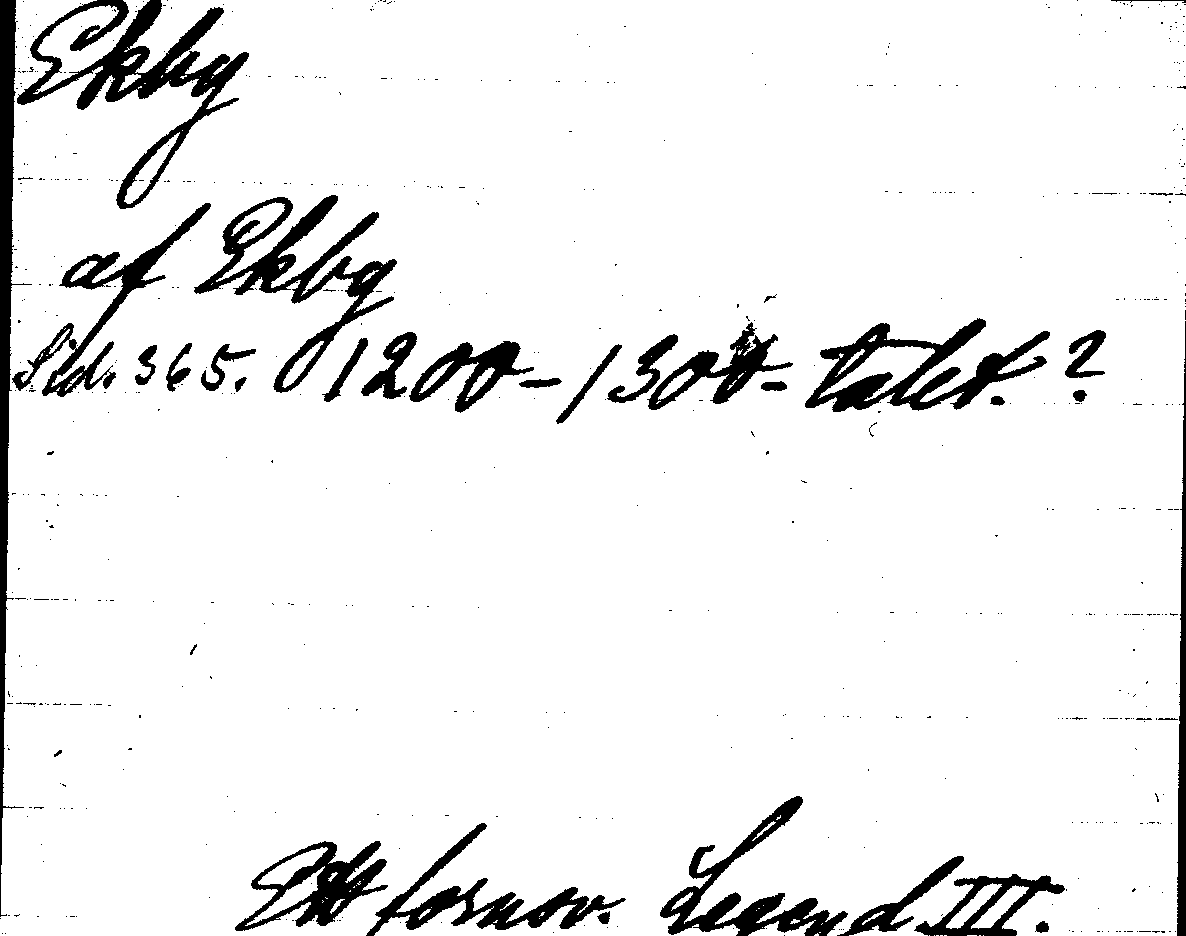 Ekby
af Ekby
Sid. 365. 1200-1300-talet.?
Ett fornsv. Legend. III.